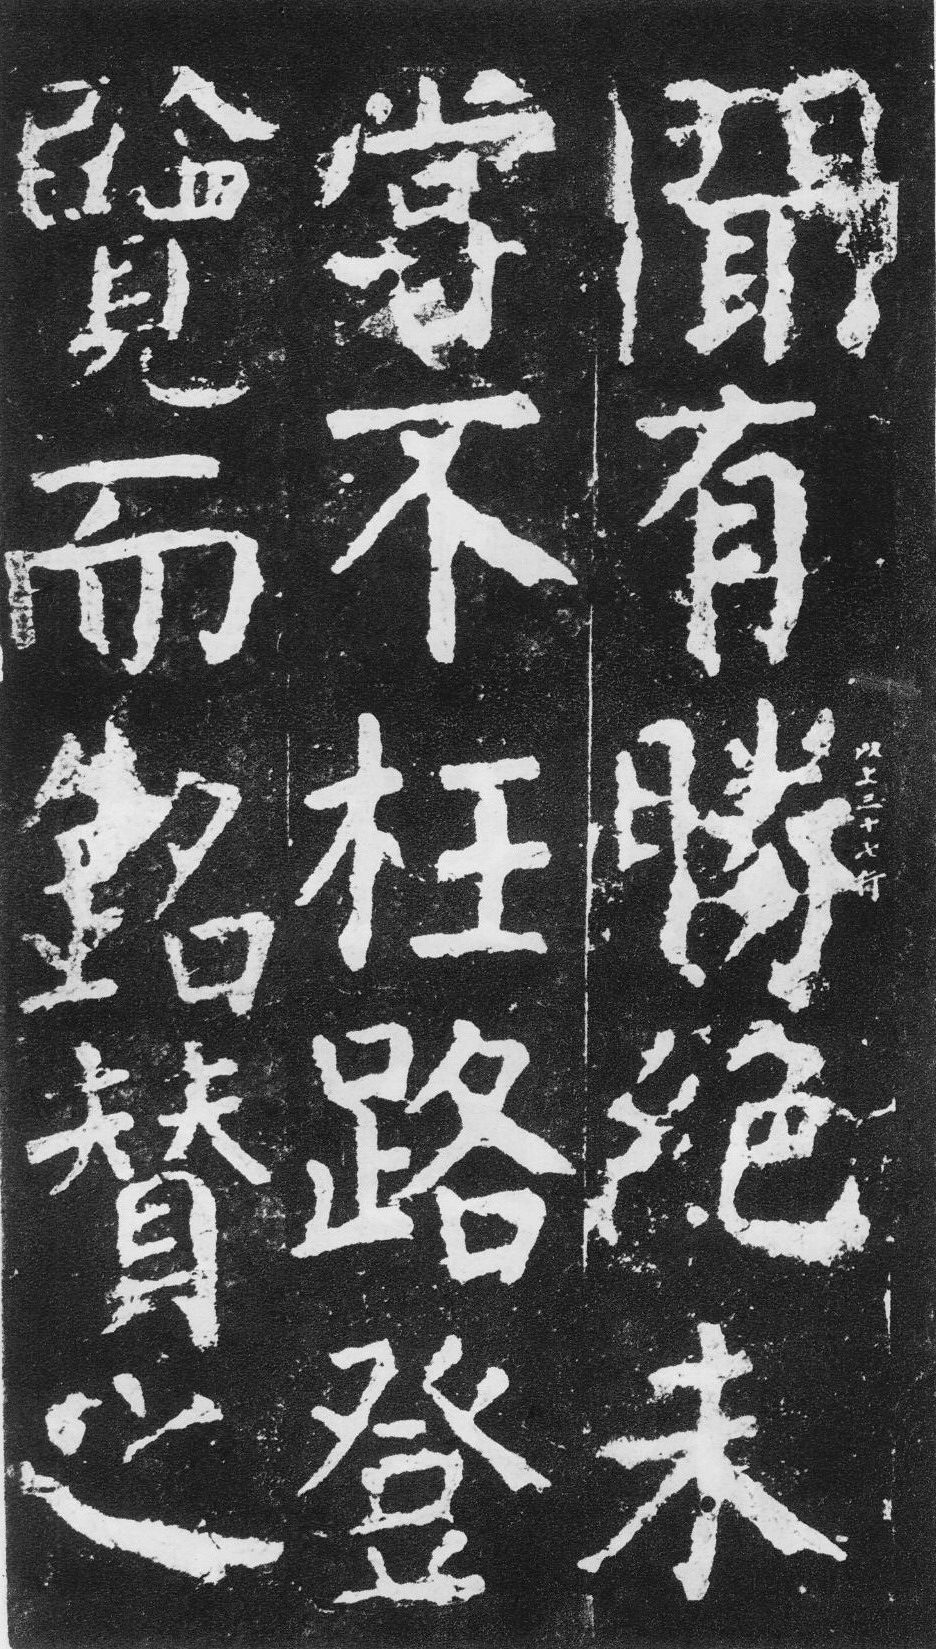 聞有勝絕未
以上三十七行
嘗不枉路登
覽而銘贊之